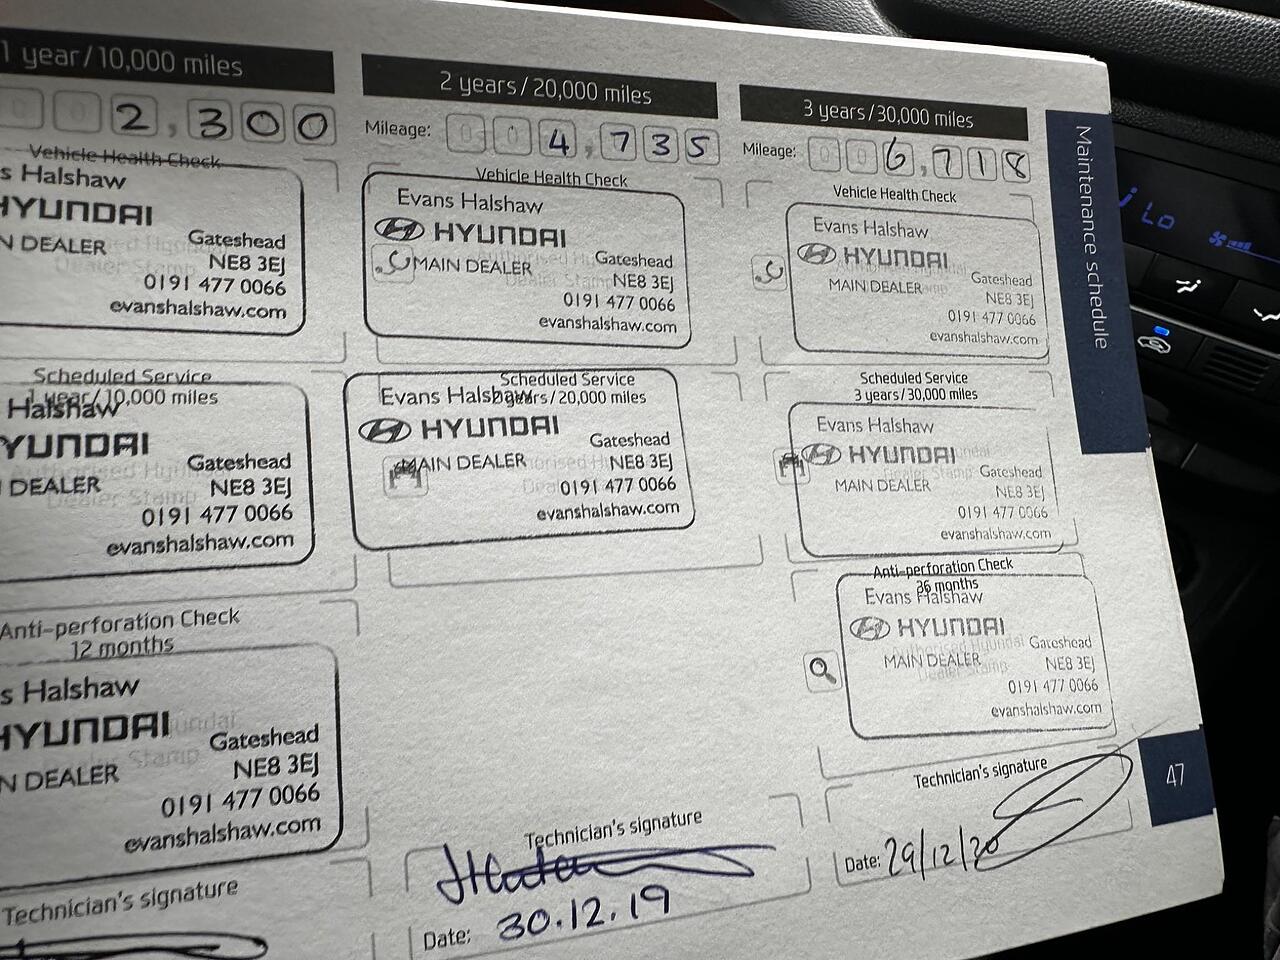 1 year/10,000 miles
2,300
Vehicle Health Check
s Halshaw
HYUNDAI
N DEALER
Gateshead
NE8 3EJ
0191 477 0066
evanshalshaw.com
Scheduled Service
1 year/10,000 miles
Halshaw
YUNDAI
DEALER
Gateshead
NE8 3EJ
0191 477 0066
evanshalshaw.com
Anti-perforation Check
12 months
s Halshaw
HYUNDAI
N DEALER
Gateshead
NE8 3EJ
0191 477 0066
evanshalshaw.com
Technician's signature
2 years/20,000 miles
Mileage: 004,735
Vehicle Health Check
Evans Halshaw
HYUNDAI
MAIN DEALER
Gateshead
NE8 3EJ
0191 477 0066
evanshalshaw.com
Scheduled Service
2 years/20,000 miles
Evans Halshaw
HYUNDAI
MAIN DEALER
Gateshead
NE8 3EJ
0191 477 0066
evanshalshaw.com
Technician's signature
Date: 30.12.19
3 years/30,000 miles
Mileage: 006,718
Vehicle Health Check
Evans Halshaw
HYUNDAI
MAIN DEALER
Gateshead
NE8 3EJ
0191 477 0066
evanshalshaw.com
Scheduled Service
3 years/30,000 miles
Evans Halshaw
HYUNDAI
MAIN DEALER
Gateshead
NE8 3EJ
0191 477 0066
evanshalshaw.com
Anti-perforation Check
36 months
Evans Halshaw
HYUNDAI
MAIN DEALER
Gateshead
NE8 3EJ
0191 477 0066
evanshalshaw.com
Technician's signature
Date: 29/12/20
Maintenance schedule
47
Lo